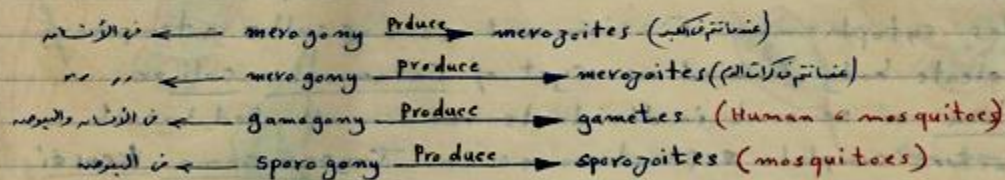 في الأنسان ← merogony Produce → merozoites (عندما تتم في الكبد)
〃 〃 ← merogony produce → merozoites (عندما تتم في كرات الدم)
في الأنسان والبعوضه ← gamogony Produce → gametes (Human & mosquitoes)
في البعوضه ← sporogony Produce → sporozoites (mosquitoes)